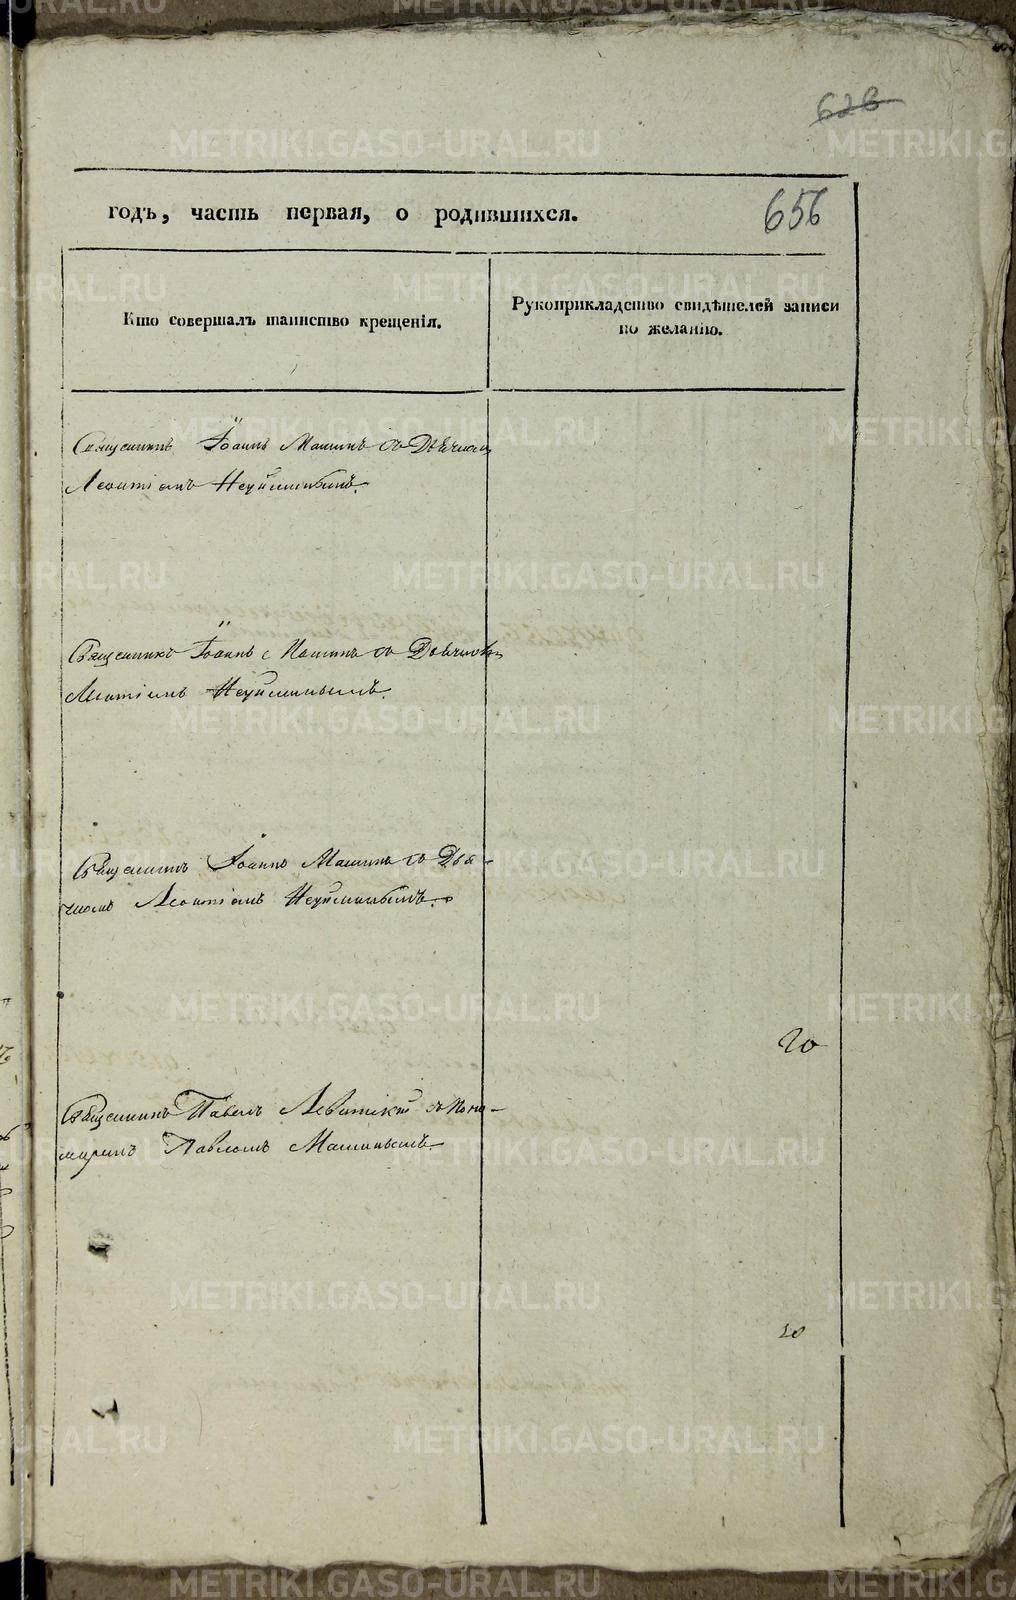 626
годъ, часть первая, о родившихся.
656
Кто совершалъ таинство крещенія.
Рукоприкладство свидѣтелей записи
по желанію.
Священникъ Іоаннъ Машинъ съ Дьячкомъ
Леонтіемъ Неуйминымъ.
Священникъ Іоаннъ Машинъ съ Дьячкомъ
Леонтіемъ Неуйминымъ
Священникъ Іоаннъ Машинъ съ Дья-
чкомъ Леонтіемъ Неуйминымъ.
20
Священникъ Павелъ Левитскій съ Поно-
маремъ Павломъ Машинымъ
20
METRIKI.GASO-URAL.RU